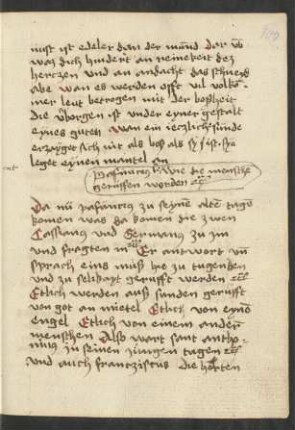 nust ist edeler dan der mund dar vō
was dich hindert an reinekeit des
hertzen und an andacht das schneid
abe wan es werden offt vil volkō-
mer leut betrogen mit der boßheit
die vborgen ist under eyner gestalt
eynes guten wan ein itzlich sunde
erzayget sich nit als boß als sy ist. sye
leget eynen mantel an
Pafuncius wie die mensche
geruffen werden etc
Da nu pafuncius zu seynē altē tagē
komen was da komen die zwen
Cassianus und Germanus zu im
und fragten in Er antwort vn
sprach eins muß
zu tugenden
und zu selikayt gerufft werden etc
Etlich werden auß sunden gerufft
von got an mietel Etlich von eynē
engel Etlich von einem anderē
menschen Also wart sant antho-
nius in seinen jungen tagen etc
und auch franciscus die horten